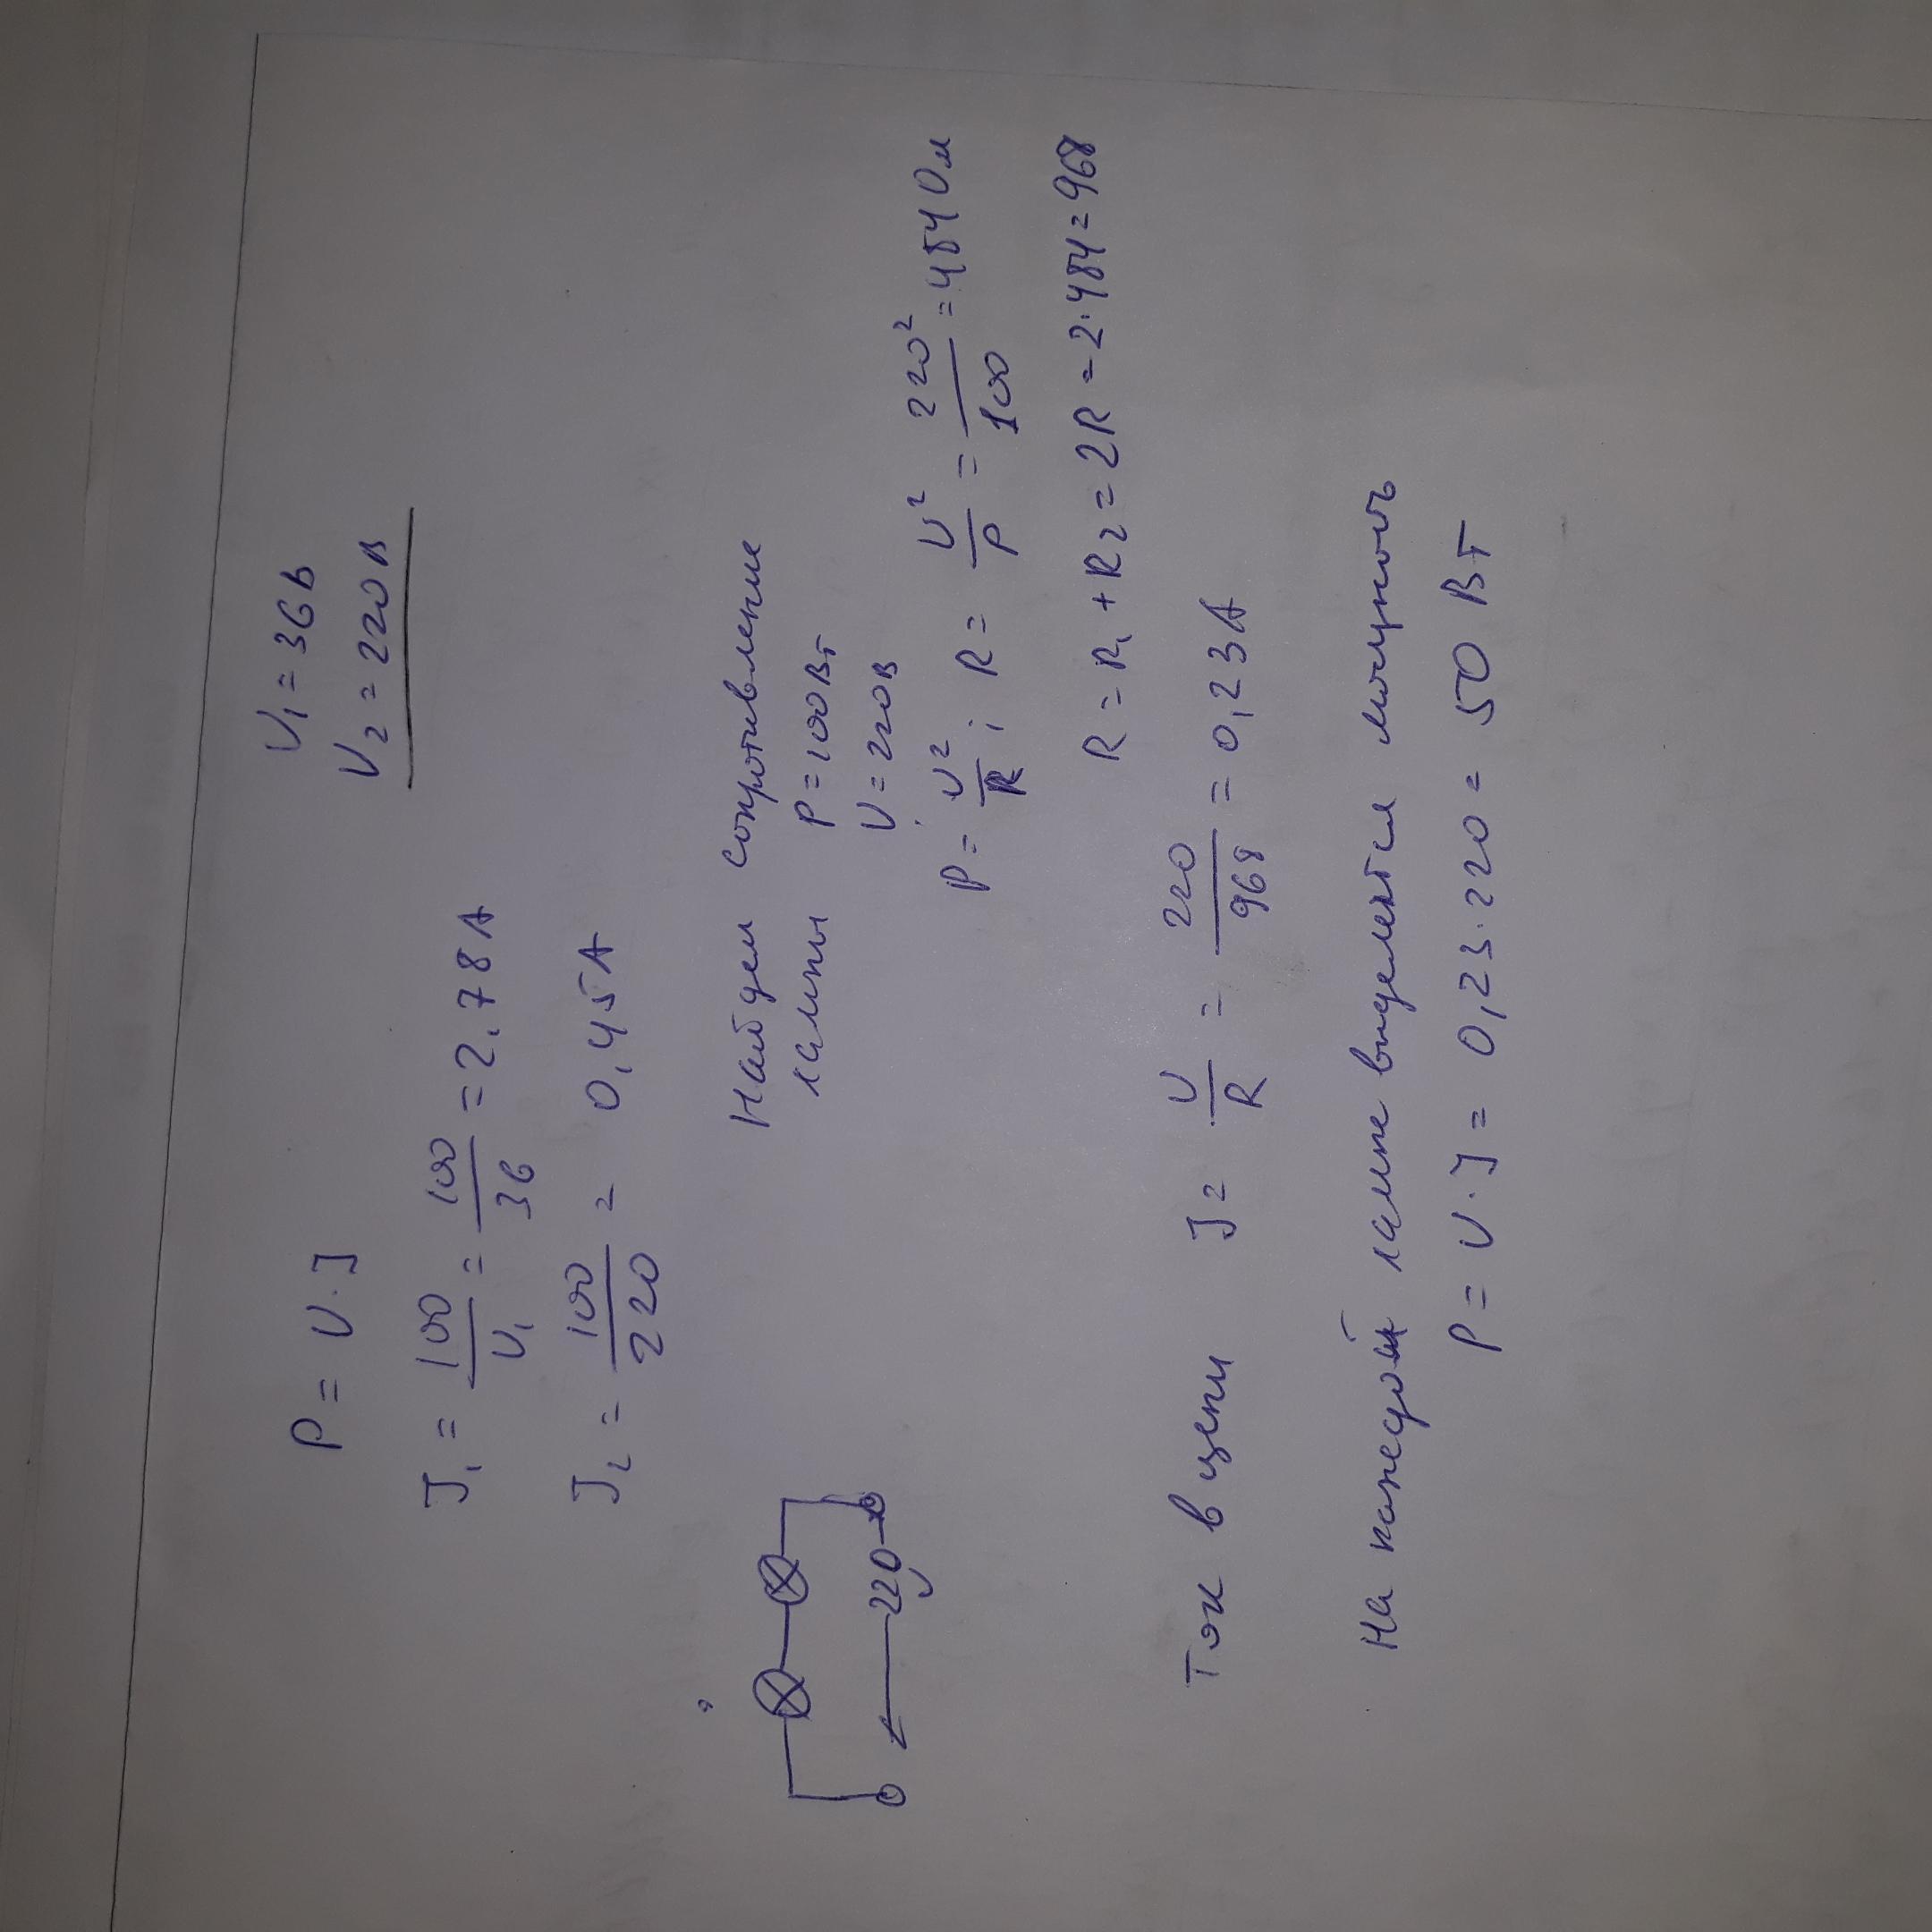 P = U · J
U₁ = 36 В
U₂ = 220 В
J₁ = 100/U₁ = 100/36 = 2,78 А
J₂ = 100/220 = 0,45 А
220
Найдем сопротивление
лампы P = 100 Вт
U = 220 В
P = U²/R; R = U²/P = 220²/100 = 484 Ом
R = R₁ + R₂ = 2R = 2·484 = 968
Ток в цепи J = U/R = 220/968 = 0,23 А
На каждой лампе выделятся мощность
P = U · J = 0,23 · 220 = 50 Вт